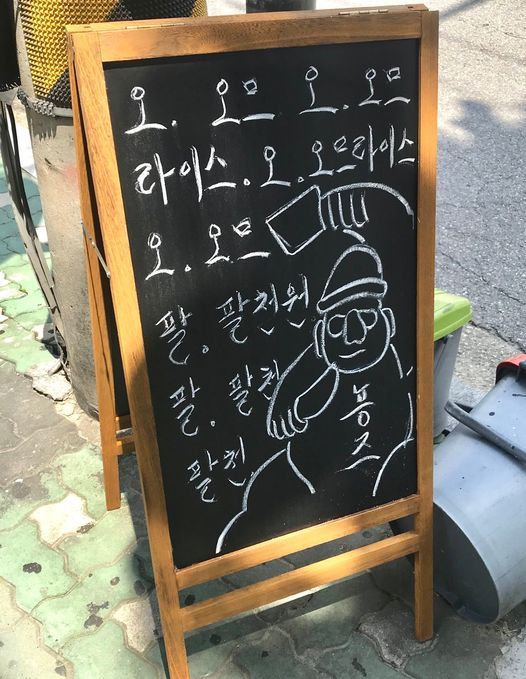 오. 오므 오. 오므
라이스. 오. 오므라이스
오. 오므
팔. 팔천원
팔. 팔천
팔천